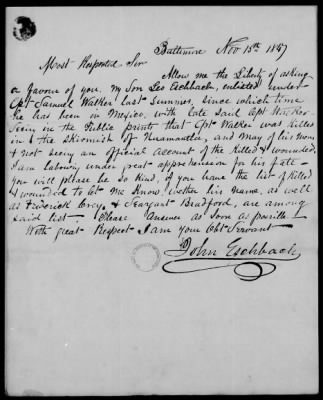 Baltimore Nov 15th 1847
Most Respected Sir
Allow me the Liberty of asking
a favour of you. My Son Leo Eschbach, enlisted under
Cpt Samuel Walker last Summer, since which time
he has been in Mexico, with late said Cpt Walker
Seein in the Public prints that Cpt Walker was killed
in the skirmist of Huamantla, and many of his men
& not seeing an official account of the Killed & wounded
I am labouring under great apprehension for his fate -
you will please be so Kind, if you have the list of Killed
& wounded to let me Know, wether his name, as well
as Frederick & Seargant Bradford, are among
said list - Please Answer as soon as possible
With great Respect I am your Obt Servant
John Eschbach